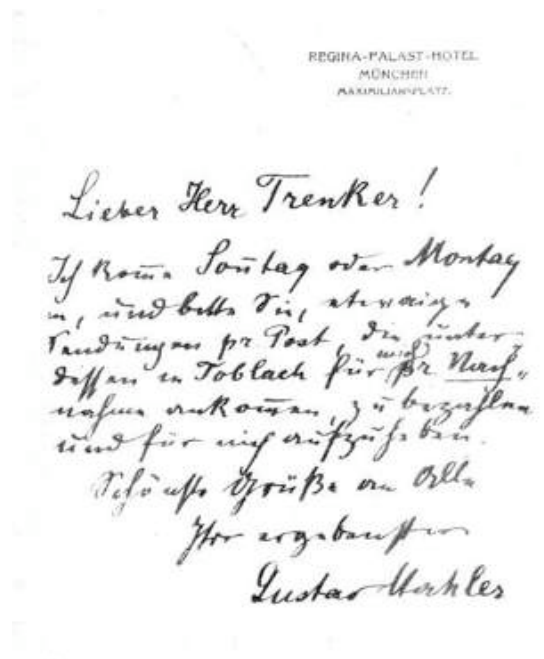 REGINA-PALAST-HOTEL
MÜNCHEN
MAXIMILIANSPLATZ.
Lieber Herr Trenker!
Ich kom̅e Son̅tag oder Montag
an, und bitte Sie, etwaige
Sendungen pr. Post, die unter-
dessen in Toblach für mich pr. Nach-
nahme ankom̅en, zu bezahlen
und für mich aufzuheben.
Schönste Grüße an Alle
Ihr ergebenster
Gustav Mahler